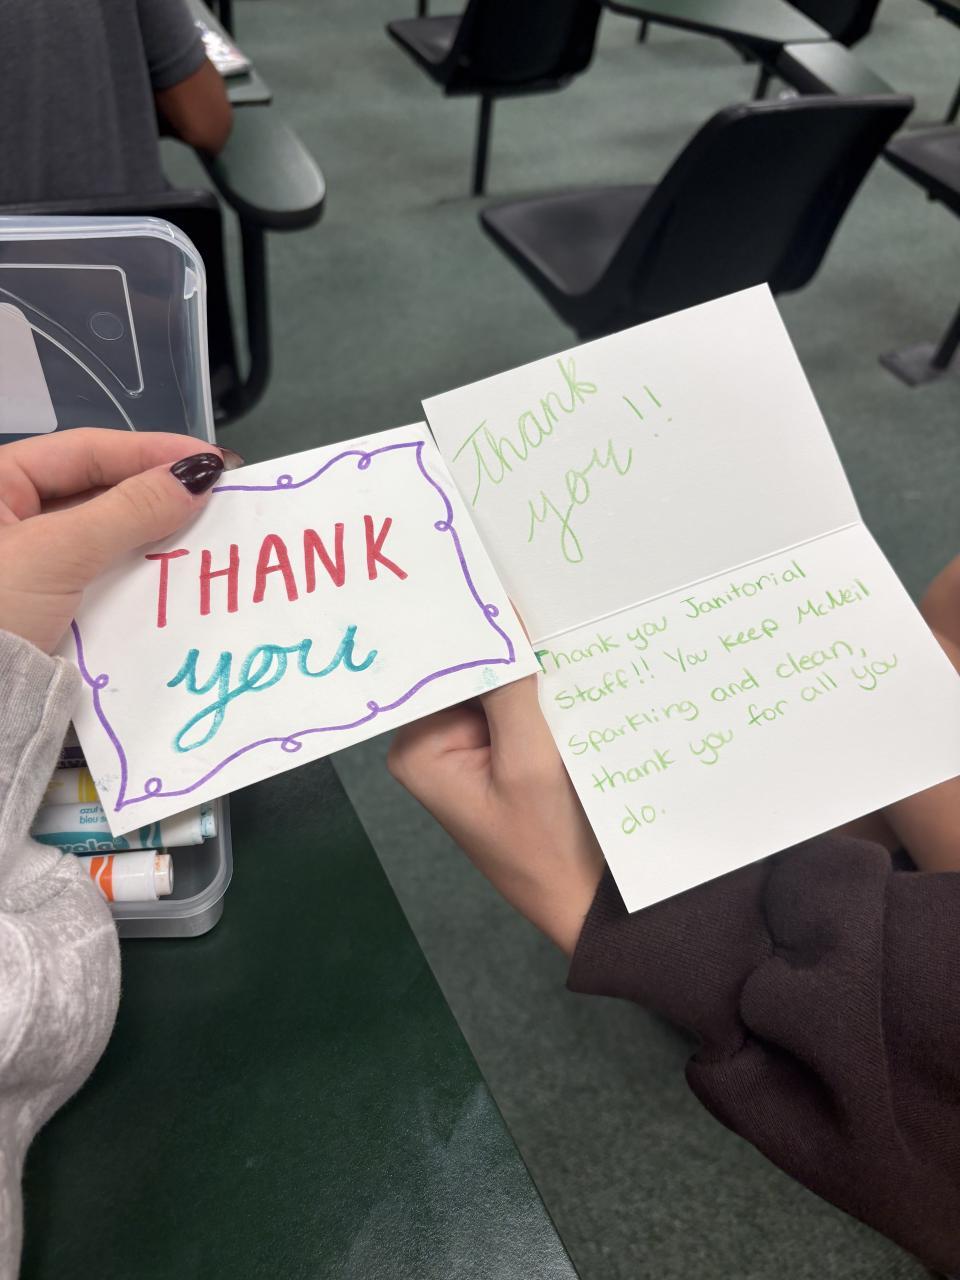 THANK
you
Thank
you!!
Thank you Janitorial
Staff!! You keep McNeil
sparkling and clean,
thank you for all you
do.
azul
bleu